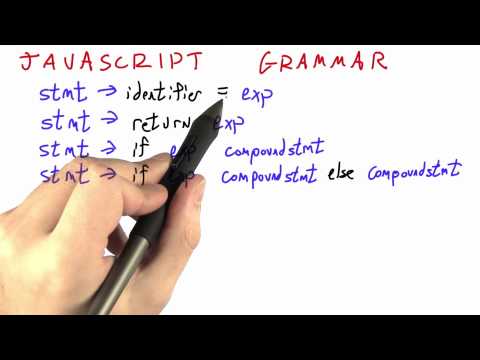 JAVASCRIPT GRAMMAR
stmt → identifier = exp
stmt → return exp
stmt → if exp compoundstmt
stmt → if exp compoundstmt else compoundstmt